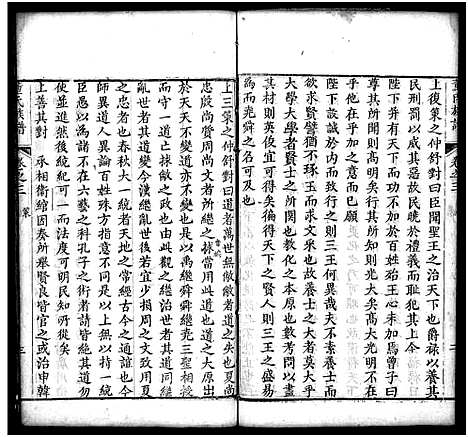 上復策之仲舒對曰臣聞聖王之治天下也爵祿以養其
民刑罰以威其惡故民曉於禮義而恥犯其上
陛下并有天下而功不加於百姓殆王心未加焉曾子曰
尊其所聞則高明矣行其所知則光大矣高明光大不在
乎他在乎加之意而已願
陛下設誠於内而致行之則三王何異哉夫不素養士而
欲求賢譬猶不琢玉而求文采也故養士之大者莫大乎
大學大學者賢士之所關也教化之本原也數考問以盡
其材則英俊宜可得矣徧得天下之賢人則三王之盛易
爲而堯舜可及也
上三策之仲舒對曰道者萬世無敝敝者道之失也夏尚
忠殷尚質周尚文者所繼之捄當用此也道之大原出
於天天不變道亦不變是以禹繼舜舜繼堯三聖相授
而守一道亡救敝之政也繇是觀之繼治世者其道同繼
亂世者其道變今漢繼亂世後若宜少損周之文致用夏
之忠者也春秋大一統者天地之常經古今之通誼也今
師異道人異論百家殊方指意不同是以上無以持一統
臣愚以爲諸不在六藝之科孔子之術者請皆絕其道勿
使並進然後統紀可一而法度可明民知所從矣
上善其對
丞相衞綰因奏所舉賢良皆官之或治申韓
董氏族譜
卷之三
策